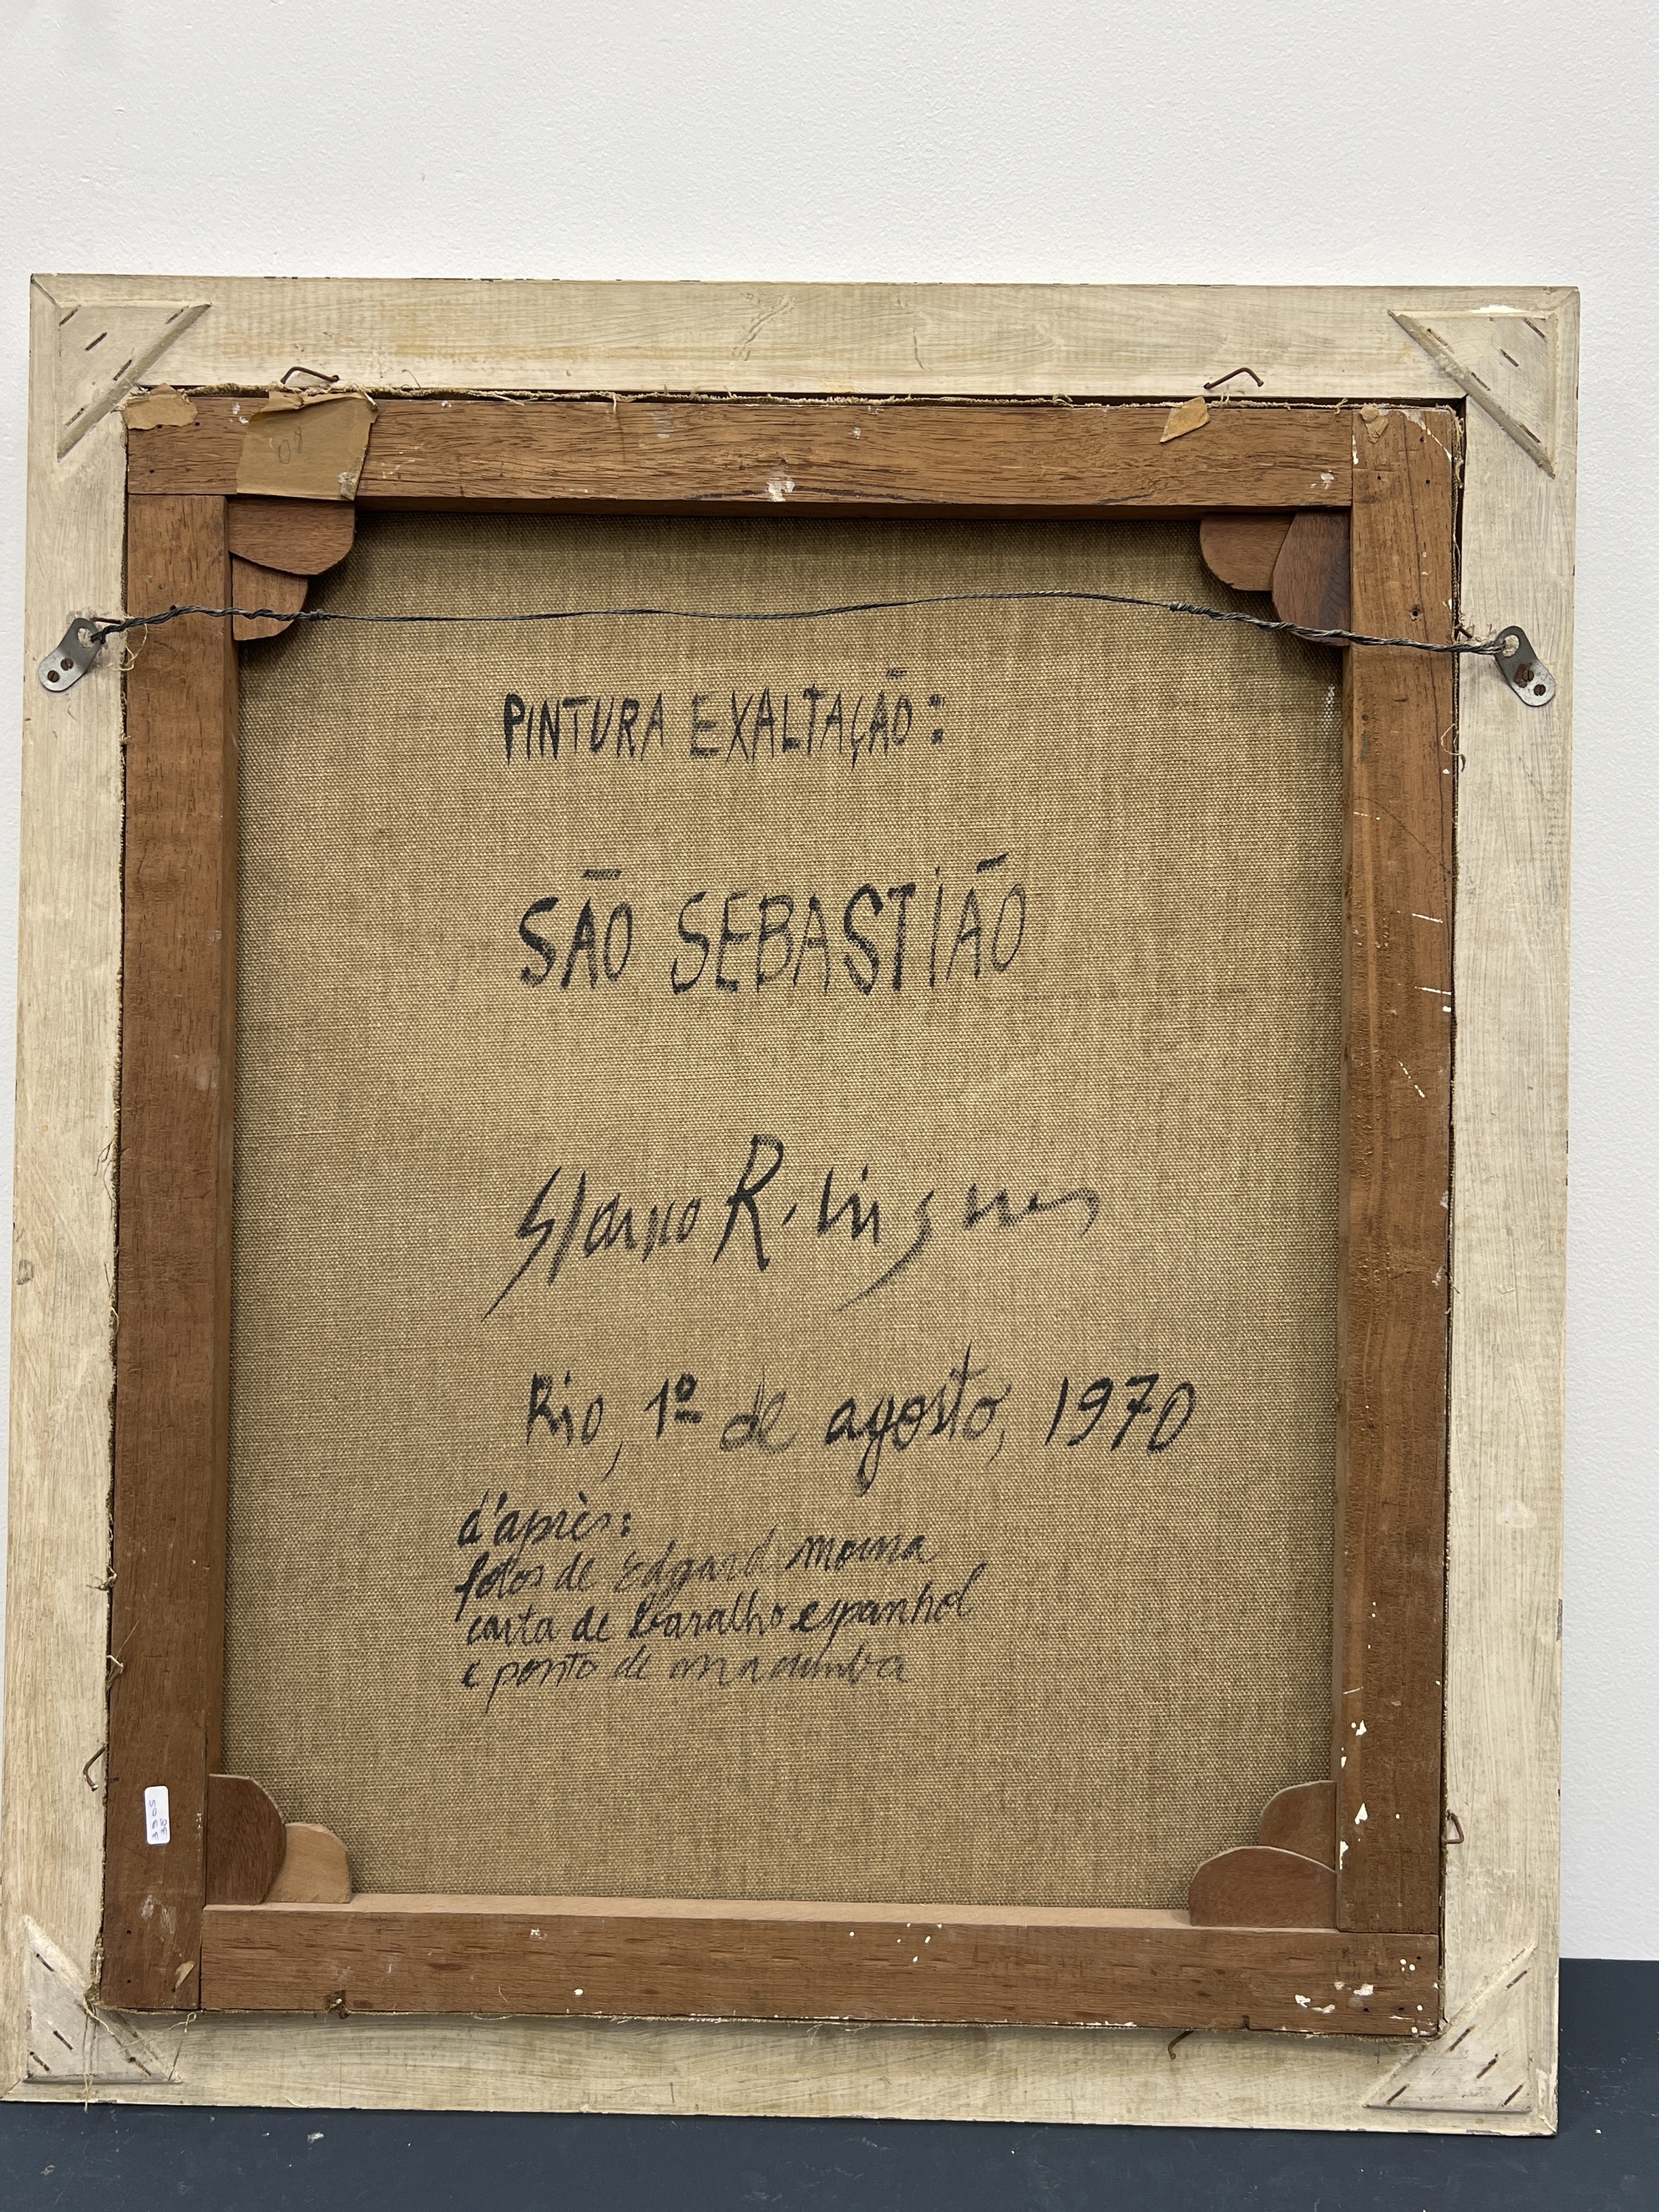 08
PINTURA EXALTAÇÃO:
SÃO SEBASTIÃO
Rio, 1º de agosto, 1970
d'après:
fotos de Edgard
carta de baralho espanhol
e ponto de macumba